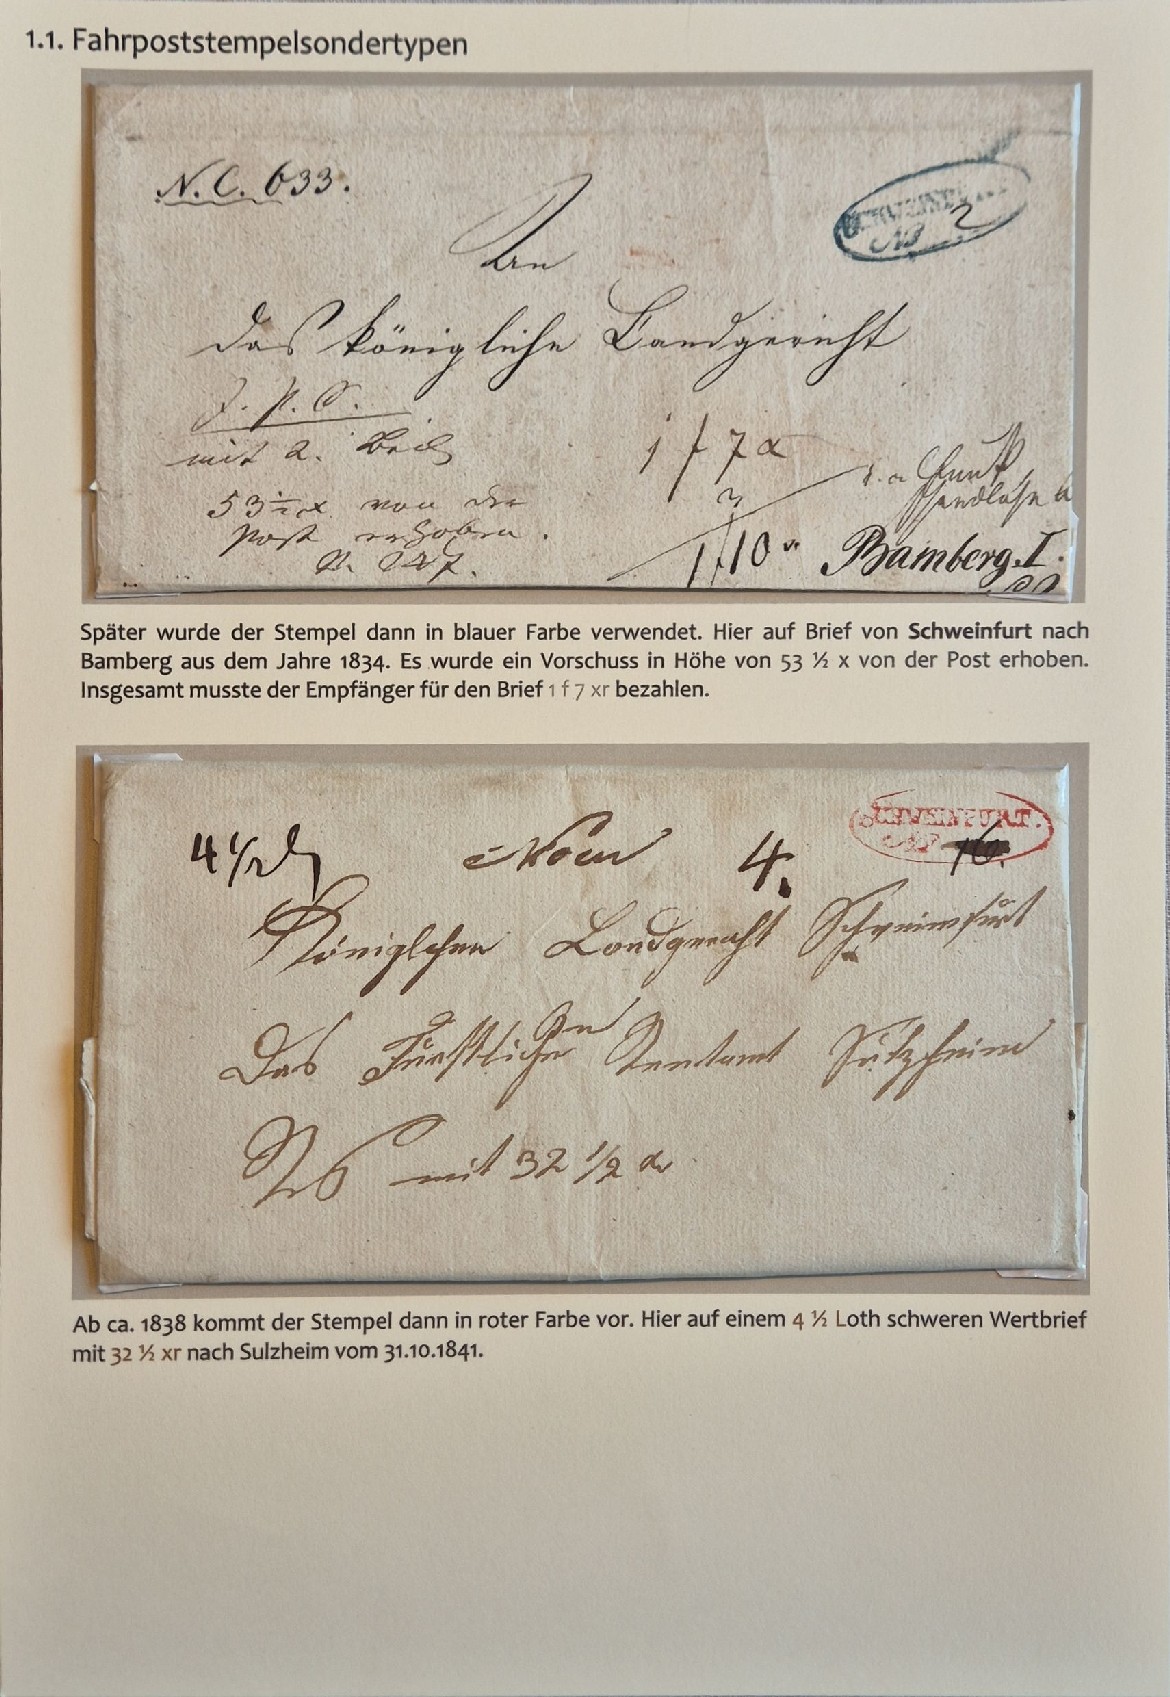 1.1. Fahrpoststempelsondertypen
N. C. 633.
SCHWEINFURT
No 2
An
das königliche Landgericht
J. P. S.
mit 2. Beil
1 f 7 x
53 ½ x von der
3
Post erhoben.
1 f 10
Bamberg. I.
Später wurde der Stempel dann in blauer Farbe verwendet. Hier auf Brief von Schweinfurt nach
Bamberg aus dem Jahre 1834. Es wurde ein Vorschuss in Höhe von 53 ½ x von der Post erhoben.
Insgesamt musste der Empfänger für den Brief 1 f 7 xr bezahlen.
SCHWEINFURT.
No 16.
4 ½ L
Vom
4.
Königlichen Landgericht Schweinfurt
An
Das Fürstliche Rentamt Sulzheim
mit 32 ½ x
Ab ca. 1838 kommt der Stempel dann in roter Farbe vor. Hier auf einem 4 ½ Loth schweren Wertbrief
mit 32 ½ xr nach Sulzheim vom 31.10.1841.